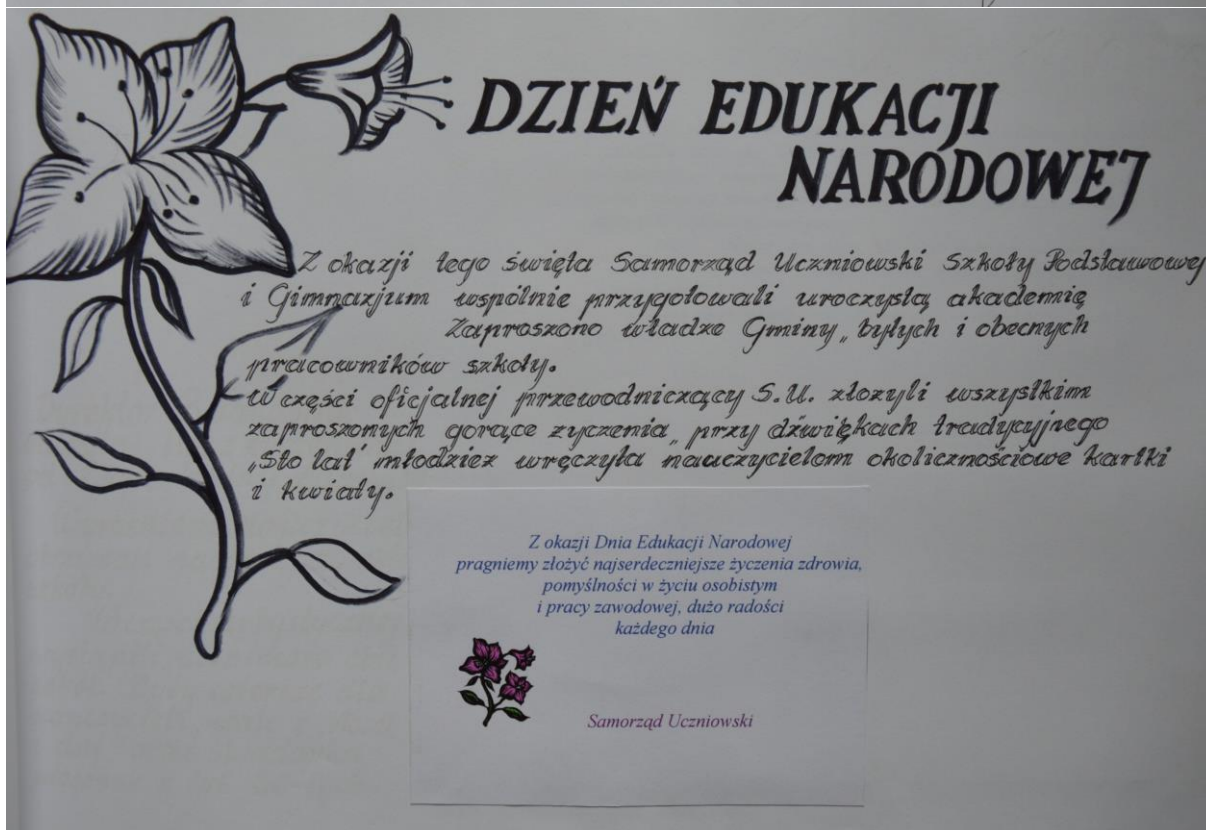 DZIEŃ EDUKACJI
NARODOWEJ
Z okazji tego święta Samorząd Uczniowski Szkoły Podstawowej
i Gimnazjum wspólnie przygotowali uroczystą akademię
Zaproszono władze Gminy, byłych i obecnych
pracowników szkoły.
W części oficjalnej przewodniczący S.U. złozyli wszystkim
zaproszonych gorące zyczenia, przy dźwiękach tradycyjnego
„Sto lat" młodziez wręczyła nauczycielom okolicznościowe kartki
i kwiaty.
Z okazji Dnia Edukacji Narodowej
pragniemy złożyć najserdeczniejsze życzenia zdrowia,
pomyślności w życiu osobistym
i pracy zawodowej, dużo radości
każdego dnia
Samorząd Uczniowski